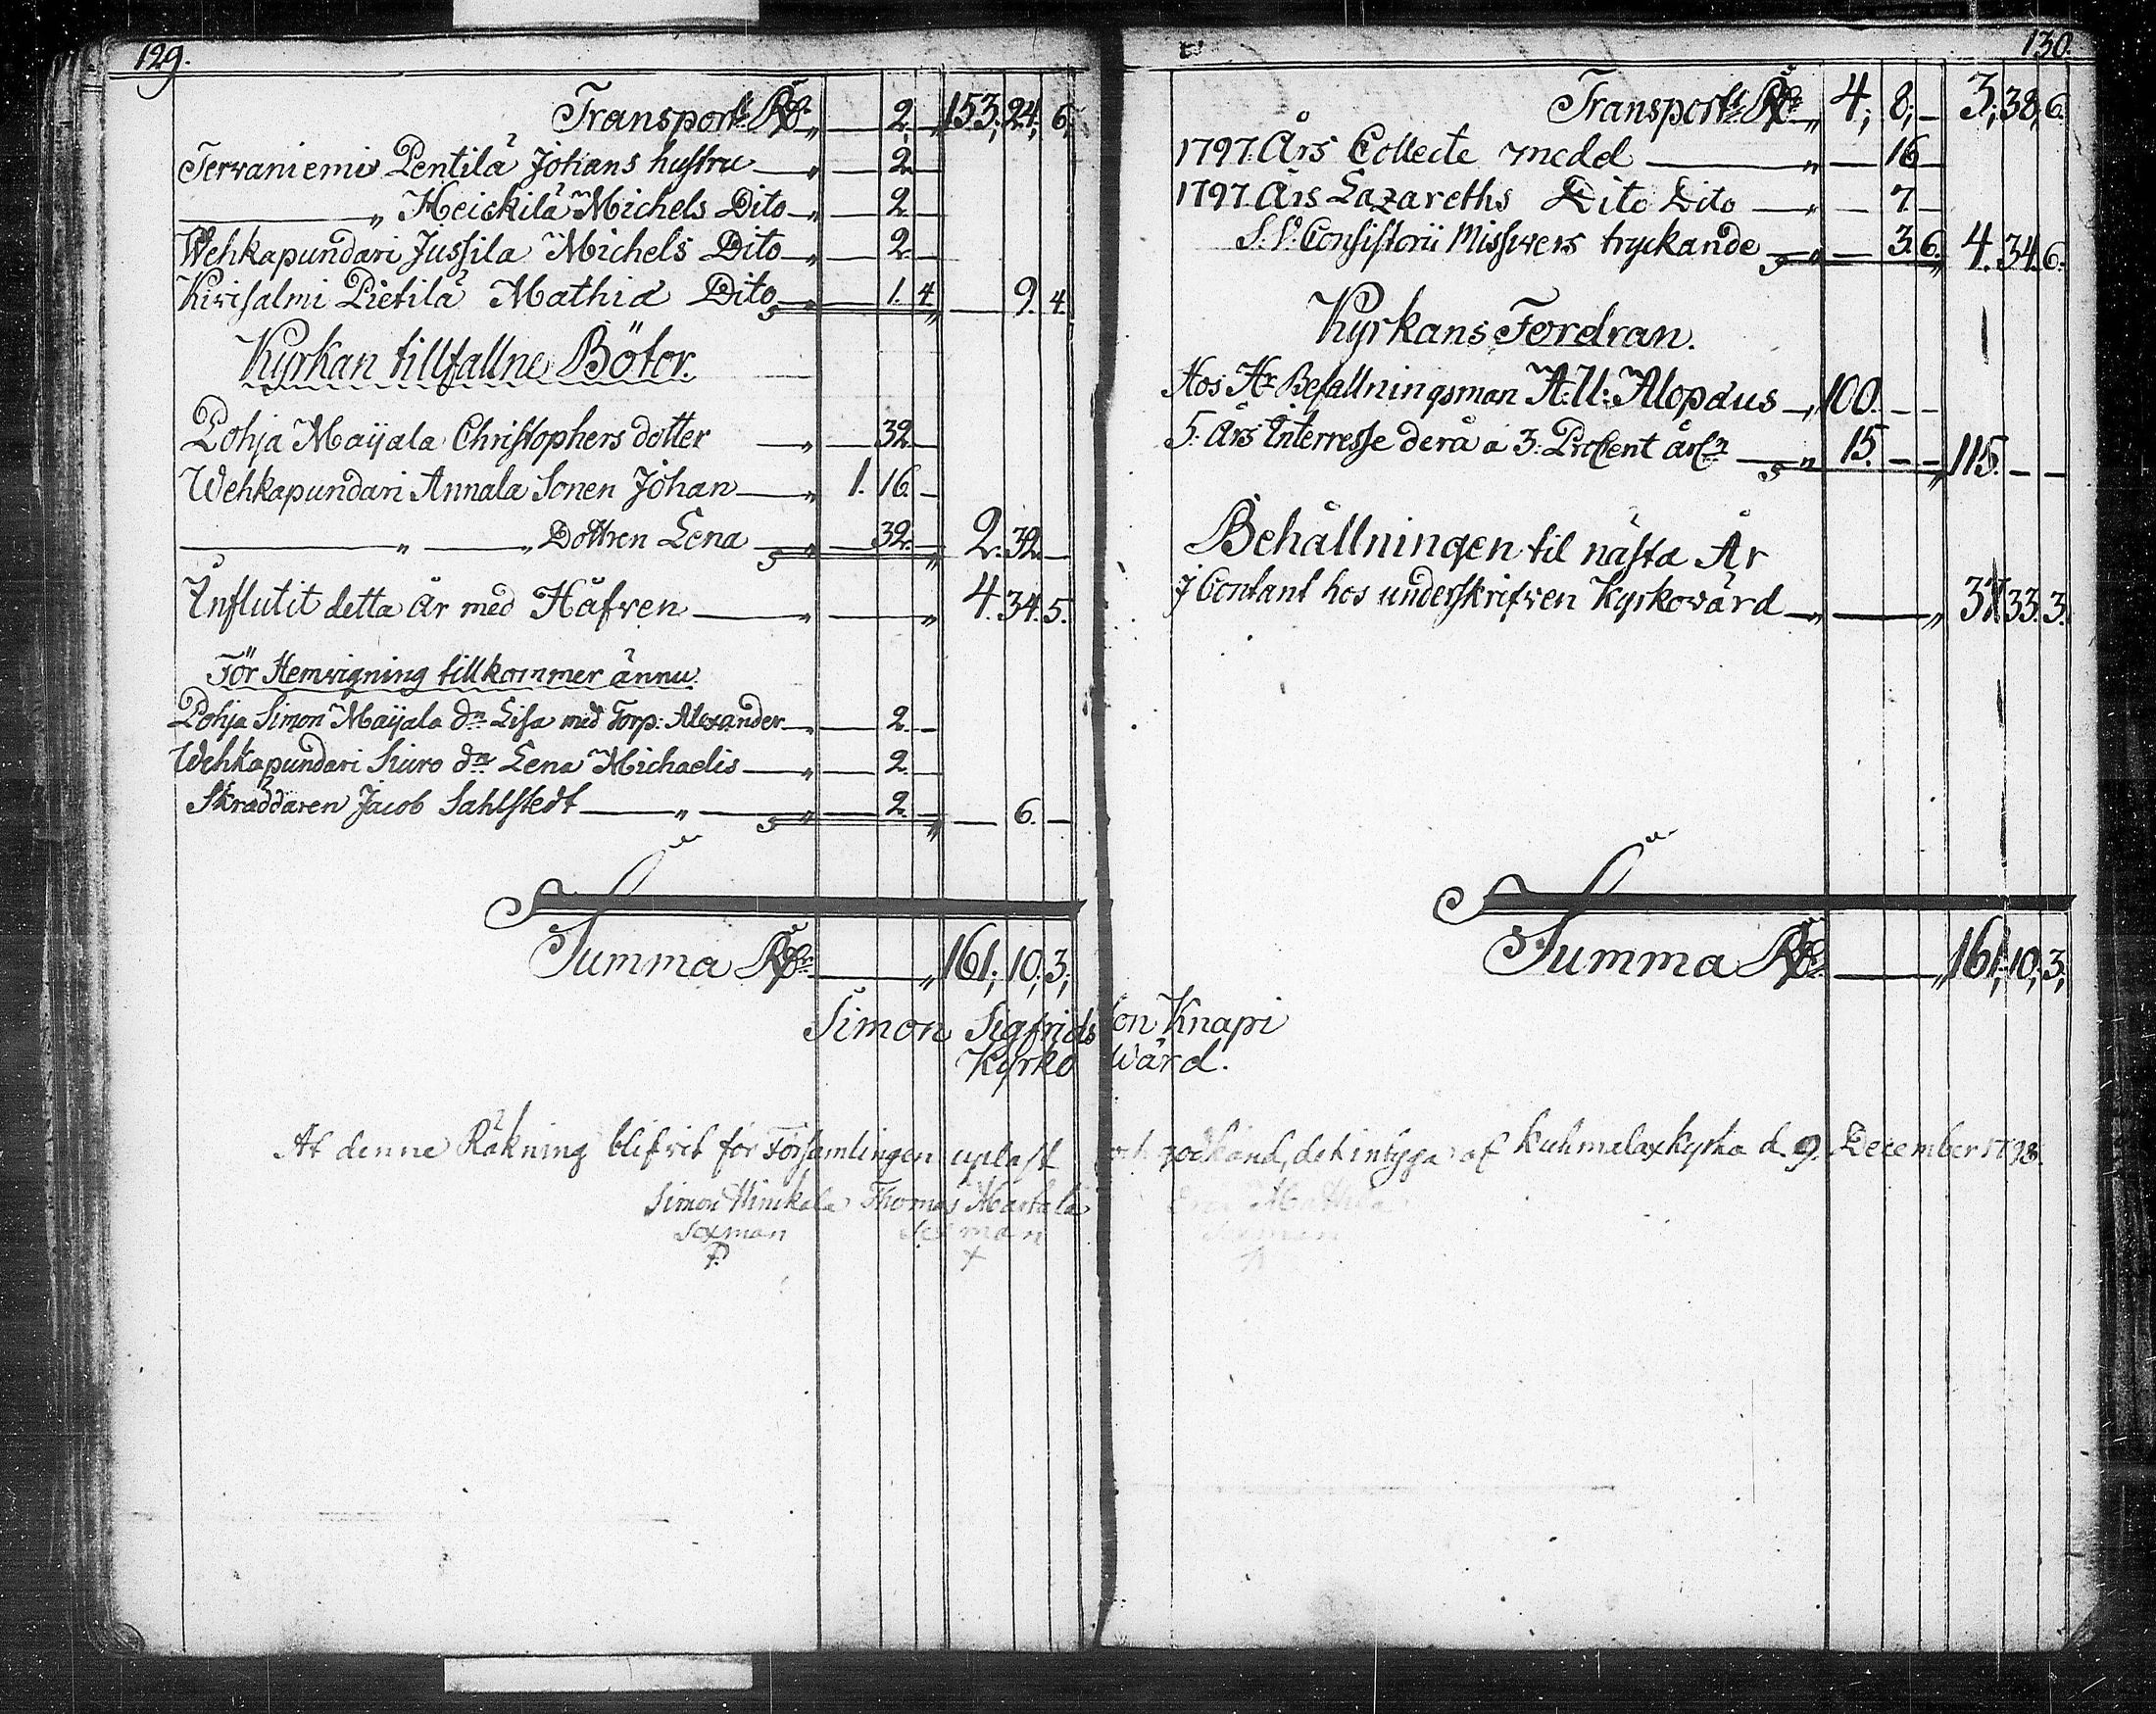 129.
Transport Rdr „ — 2. „ 153; 24; 6;
Tervaniemi Pentilä Johans hustru — „ — 2. —
— „ Heickilä Michels Dito — „ — 2. —
Wehkapundari Jussila Michels Dito — „ — 2. —
Kirisalmi Pietilä Mathia Dito — „ — 1. 4. „ — 9. 4.
Kyrkan tillfallne Böter.
Pohja Maijala Christophers dotter — „ — 32. —
Wehkapundari Annala Sonen Johan — „ 1. 16. —
— „ — „ Dottren Lena — „ — 32. „ 2. 32. —
Influtit detta År med Håfven — „ — „ 4. 34. 5.
För Hemvigning tillkommer ännu
Pohja Simon Maijala dr Lisa med Torp: Alexander — „ — 2. —
Wehkapundari Siuro dr Lena Michaelis — „ — 2. —
Skräddaren Jacob Sahlstedt — „ — „ — 2. — „ — 6. —
Summa Rdr — „ 161; 10; 3;
130.
Transport Rdr „ 4; 8; — 3; 38; 6.
1797. Års Collecte medel — „ — 16 —
1797. Års Lazareths Dito Dito — „ — 7 —
S. V. Consistorii Missivers tryckande — „ — 3. 6. „ 4. 34. 6.
Kyrkans Fordran.
Hos Hr Befallningsman A: U: Alopæus — „ 100. — —
5. Års Interresse derå a 3. ProCent årln — „ 15. — — „ 115. — —
Behållningen til nästa År
I Contant hos underskrifven Kyrkovärd — „ — „ 37. 33. 3.
Summa Rdr — „ 161; 10; 3;
Simon Sigfridsson Knapi
Kyrko Wärd.
At denne Räkning blifvit för Församlingen upläst och godkänd, det intyga af Kuhmalax kyrka d. 9. December 1798.
Simon Hinckala Thomas Marttala Mathila
Sexman Sexman Sexman